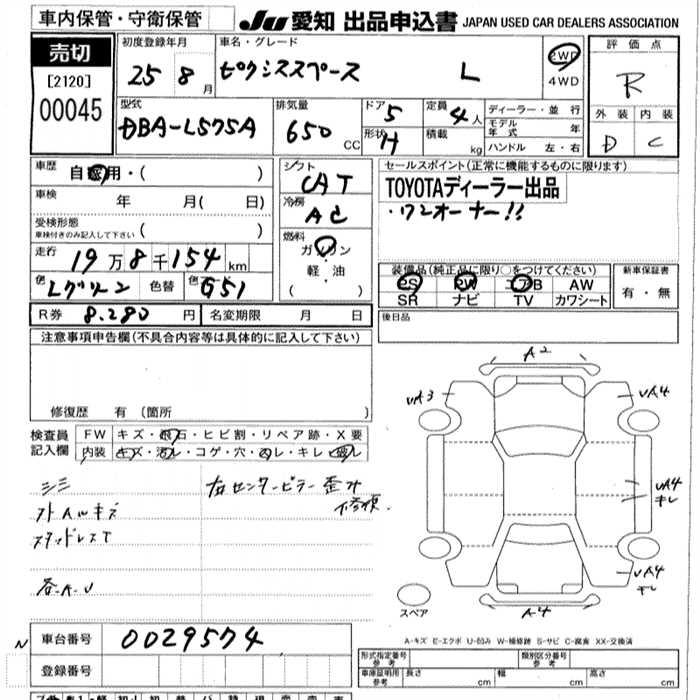 車内保管・守衛保管
JU 愛知 出品申込書 JAPAN USED CAR DEALERS ASSOCIATION
売切
[2120]
00045
初度登録年月
25 8 月
車名・グレード
ピクシススペース L
2WD
4WD
評価点
R
外装 内装
D C
型式
DBA-L575A
排気量
650 CC
ドア 5
形状 H
定員 4人
積載 kg
ディーラー・並行
モデル年式 年
ハンドル 左・右
車歴
自家用・( )
車検 年 月( 日)
受検形態
車検付きのみ記入して下さい ( )
走行 19万8千154km
色 Lグリーン 色替 色 G51
シフト
CAT
冷房
AC
燃料
ガソリン
軽・油
( )
セールスポイント(正常に機能するものに限ります)
TOYOTAディーラー出品
・ワンオーナー!!
装備品(純正品に限り○をつけてください)
PS PW エアB AW
SR ナビ TV カワシート
新車保証書
有・無
R券 8.280 円 名変期限 月 日
後日品
注意事項申告欄(不具合内容等は具体的に記入して下さい)
修復歴 有 〔箇所 〕
検査員
記入欄
FW キズ・飛石・ヒビ割・リペア跡・X要
内装 キズ・汚レ・コゲ・穴・凹レ・キレ・破レ
シミ
右センターピラー歪み
修復
スタッドレスT
各.A.U
A2
UA3
UA4
UA4
キレ
UA4
キレ
A4
スペア
A-キズ E-エクボ U-凹み W-補修跡 S-サビ C-腐食 XX-交換済
N
車台番号 0029574
登録番号
形式指定番号
参考
類別区分番号
参考
車庫証明用
参考
長さ cm 幅 cm 高さ cm